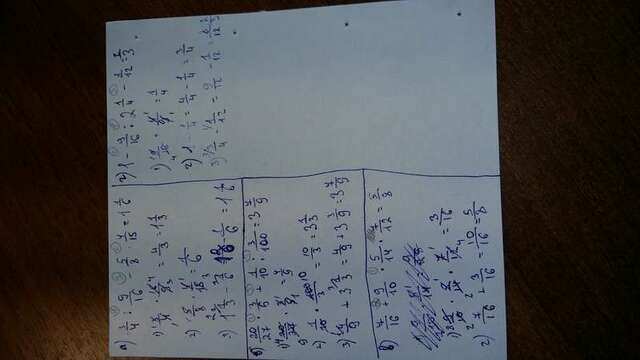 а) 3/4 : 9/16 - 5/8 · 4/15 = 1 1/6
1) 3/4 · 16/9 = 4/3 = 1 1/3
2) 5/8 · 4/15 = 1/6
3) 1 1/3 - 1/6 = 1 1/6
б) 20/27 · 3/5 + 1/10 : 3/100 = 3 7/9
1) 20/27 · 3/5 = 4/9
2) 1/10 · 100/3 = 10/3 = 3 1/3
3) 4/9 + 3 1/3 = 4/9 + 3 3/9 = 3 7/9
в) 7/16 + 9/10 · 5/14 · 7/12 = 5/8
1) 9/10 · 5/14 · 7/12 = 3/16
2) 7/16 + 3/16 = 10/16 = 5/8
г) 1 - 9/16 : 2 1/4 - 1/12 = 2/3
1) 9/16 · 4/9 = 1/4
2) 1 - 1/4 = 4/4 - 1/4 = 3/4
3) 3/4 - 1/12 = 9/12 - 1/12 = 8/12 = 2/3